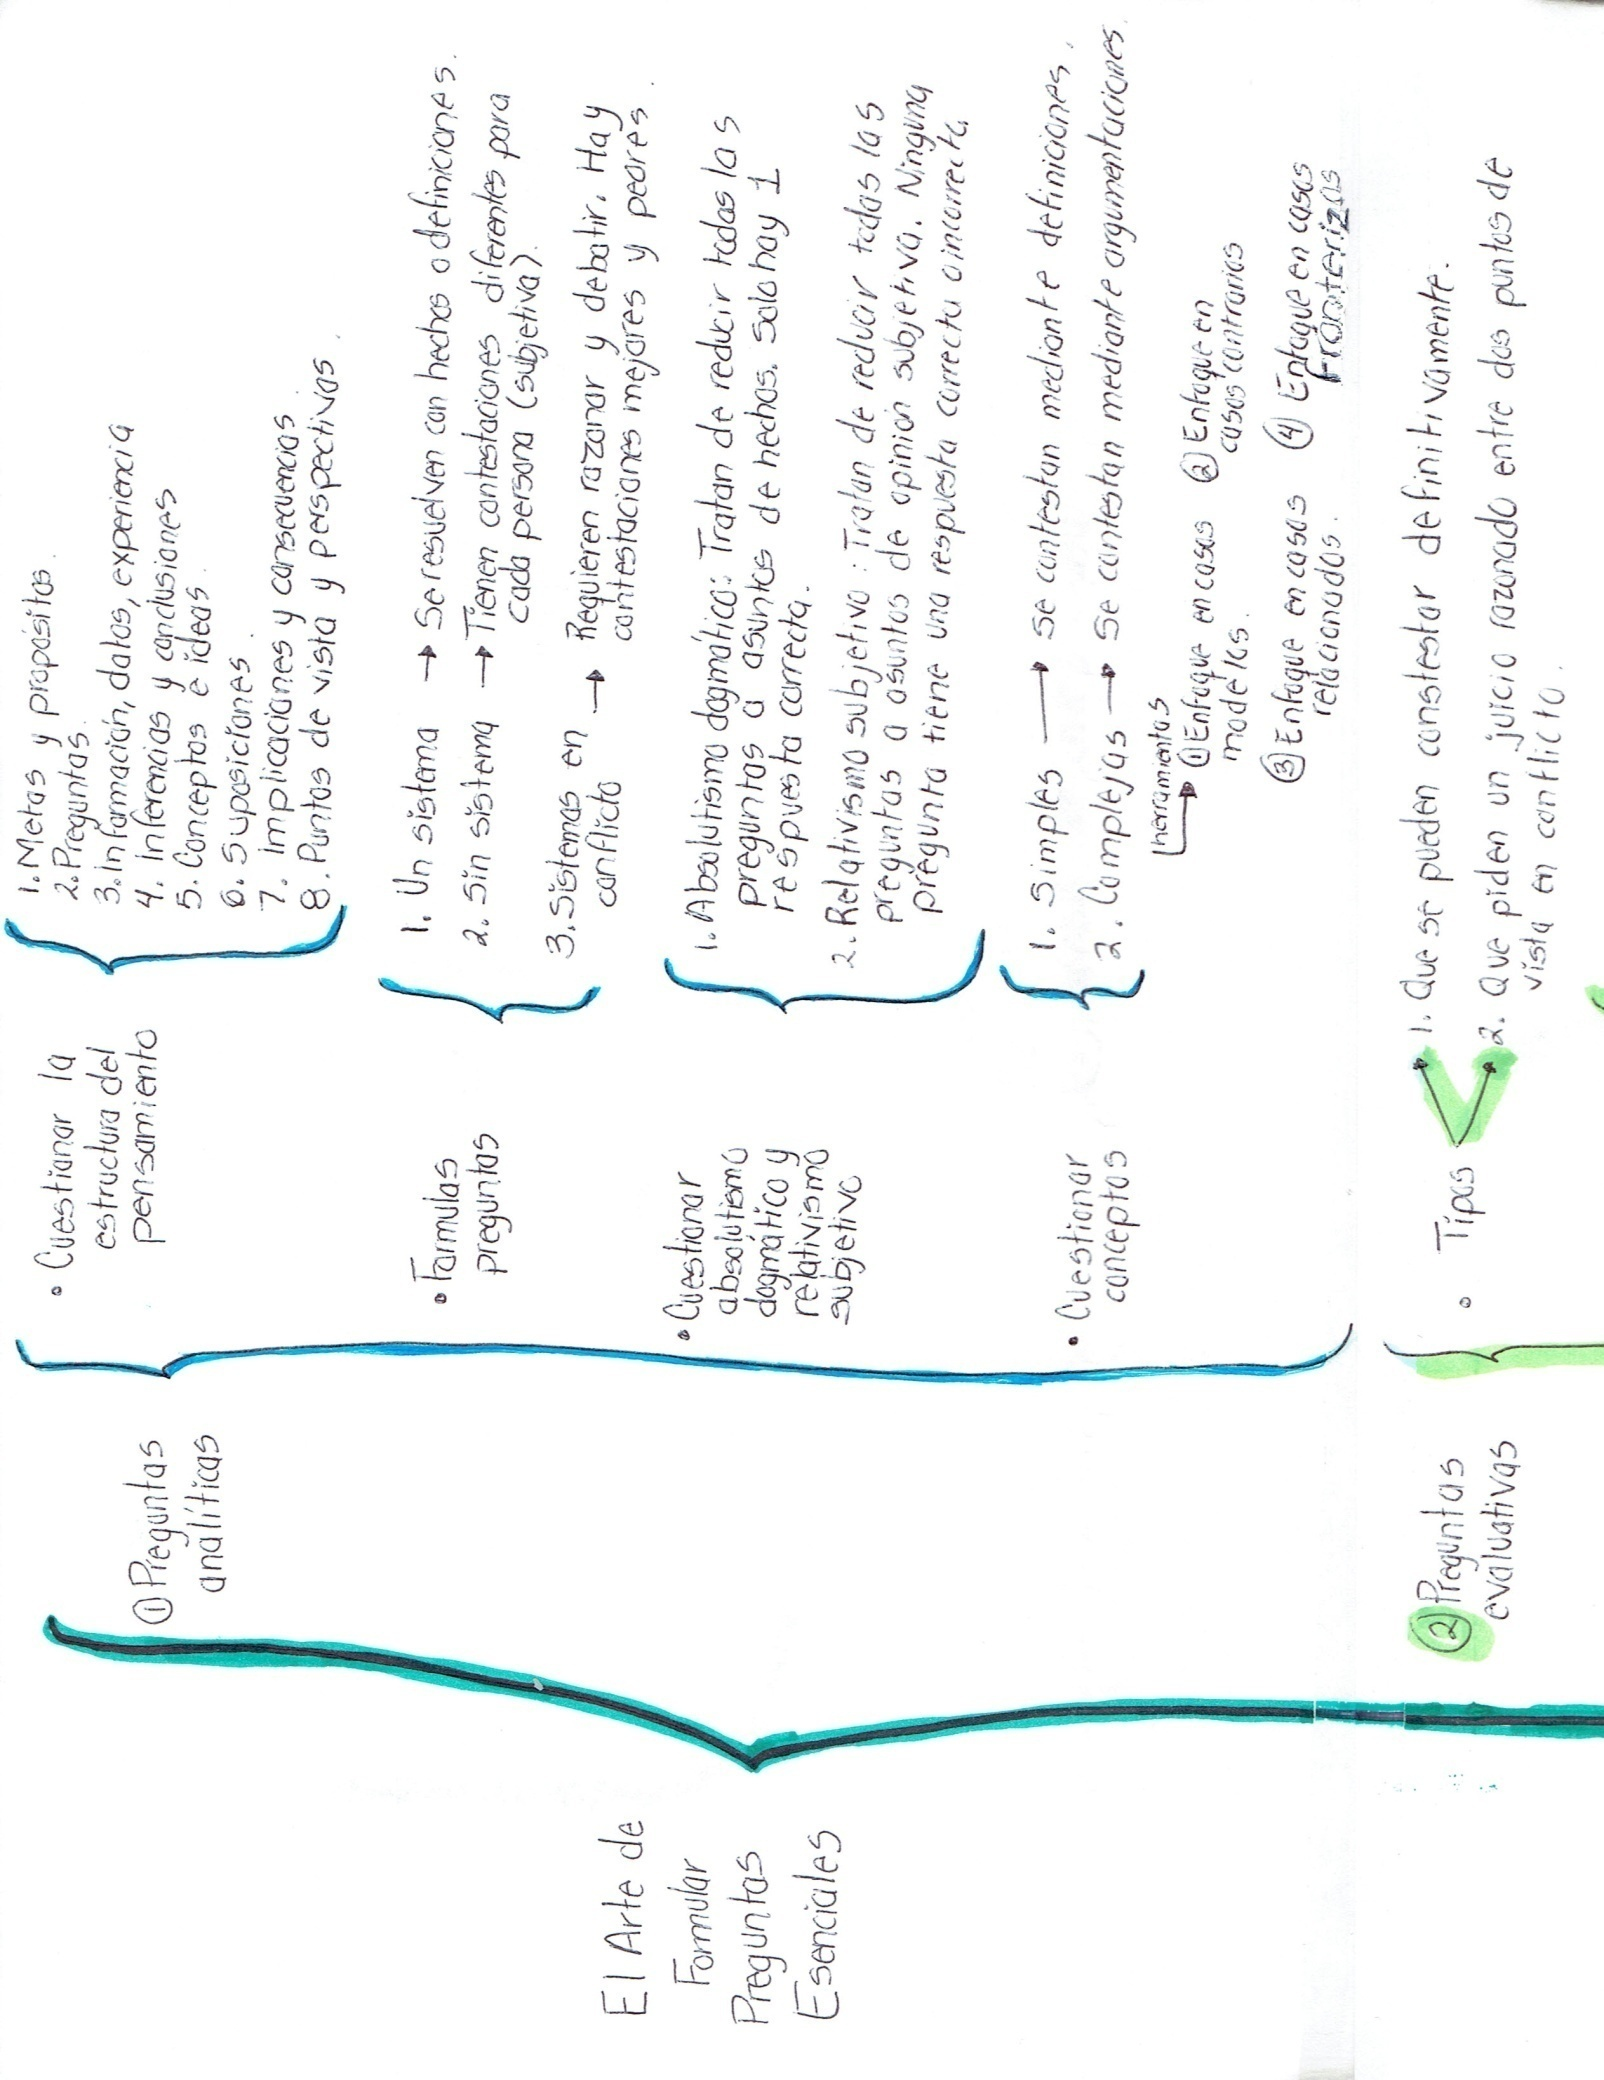 El Arte de
Formular
Preguntas
Esenciales
① Preguntas
analíticas
• Cuestionar la
estructura del
pensamiento
1. Metas y propósitos.
2. Preguntas.
3. Información, datos, experiencia
4. Inferencias y conclusiones
5. Conceptos e ideas.
6. Suposiciones.
7. Implicaciones y consecuencias
8. Puntos de vista y perspectivas.
• Formulas
preguntas
1. Un sistema → Se resuelven con hechos o definiciones.
2. Sin sistema → Tienen contestaciones diferentes para
cada persona (subjetiva).
3. Sistemas en
conflicto → Requieren razonar y debatir. Hay
contestaciones mejores y peores.
• Cuestionar
absolutismo
dogmático y
relativismo
subjetivo
1. Absolutismo dogmático: Tratan de reducir todas las
preguntas a asuntos de hechos. Solo hay 1
respuesta correcta.
2. Relativismo subjetivo: Tratan de reducir todas las
preguntas a asuntos de opinión subjetiva. Ninguna
pregunta tiene una respuesta correcta o incorrecta.
• Cuestionar
conceptos
1. Simples → Se contestan mediante definiciones.
2. Complejas → Se contestan mediante argumentaciones.
herramientas
① Enfoque en casos
modelos.
② Enfoque en
casos contrarios
③ Enfoque en casos
relacionados.
④ Enfoque en casos
fronterizos
② Preguntas
evaluativas
• Tipos
1. Que se pueden constestar definitivamente.
2. Que piden un juicio razonado entre dos puntos de
vista en conflicto.